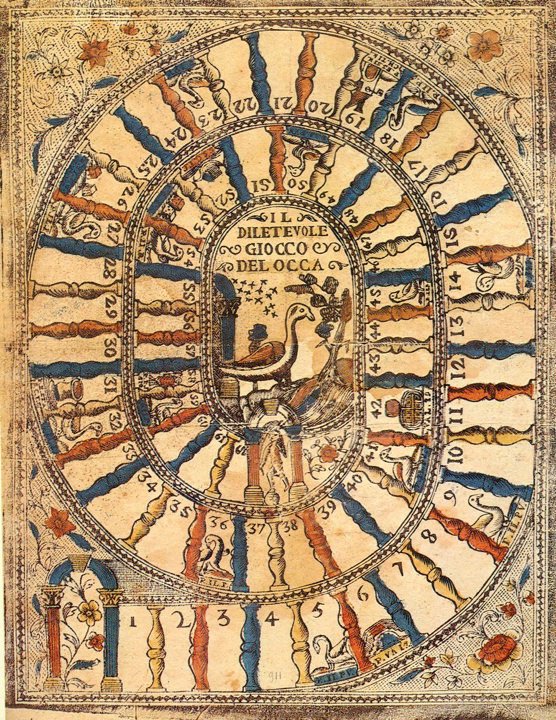 IL
DILETEVOLE
GIOCCO
DEL OCCA
1
2
3
4
5
7
8
9
10
11
12
13
14
15
17
18
19
20
21
22
23
24
25
27
28
29
30
31
32
33
34
35
36
37
38
39
40
41
42
43
44
45
47
48
49
50
51
52
53
55
56
57